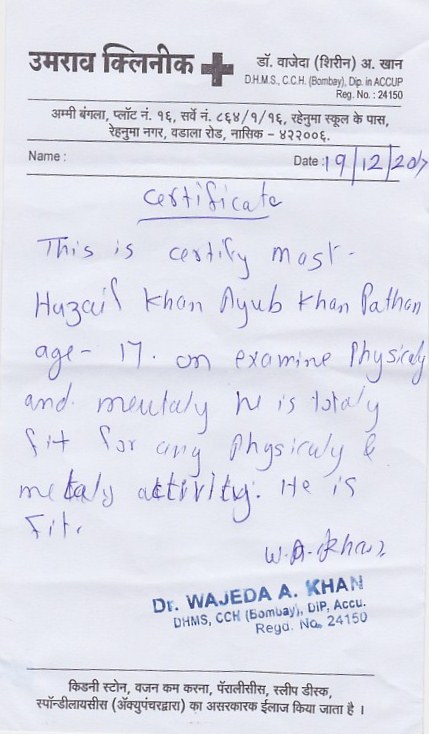 उमराव क्लिनीक
डॉ. वाजेदा (शिरीन) अ. खान
D.H.M.S., C.C.H. (Bombay), Dip. in ACCUP
Reg. No. : 24150
अम्मी बंगला, प्लॉट नं. १६, सर्वे नं. ८६४/१/१६, रहेनुमा स्कूल के पास,
रेहनुमा नगर, वडाला रोड, नासिक - ४२२००६.
Name :
Date : 19/12/2017
Certificate
This is certify mast-
Huzaif Khan Ayub Khan Pathan
age - 17. on examine Physicaly
and mentaly he is totaly
fit for any Physicaly &
metaly activity. He is
Fit.
W.A. Khan
Dr. WAJEDA A. KHAN
DHMS, CCH (Bombay), DIP, Accu.
Regd. No. 24150
किडनी स्टोन, वजन कम करना, पॅरालीसीस, स्लीप डीस्क,
स्पॉन्डीलायसीस (ॲक्युपंचरद्वारा) का असरकारक ईलाज किया जाता है ।